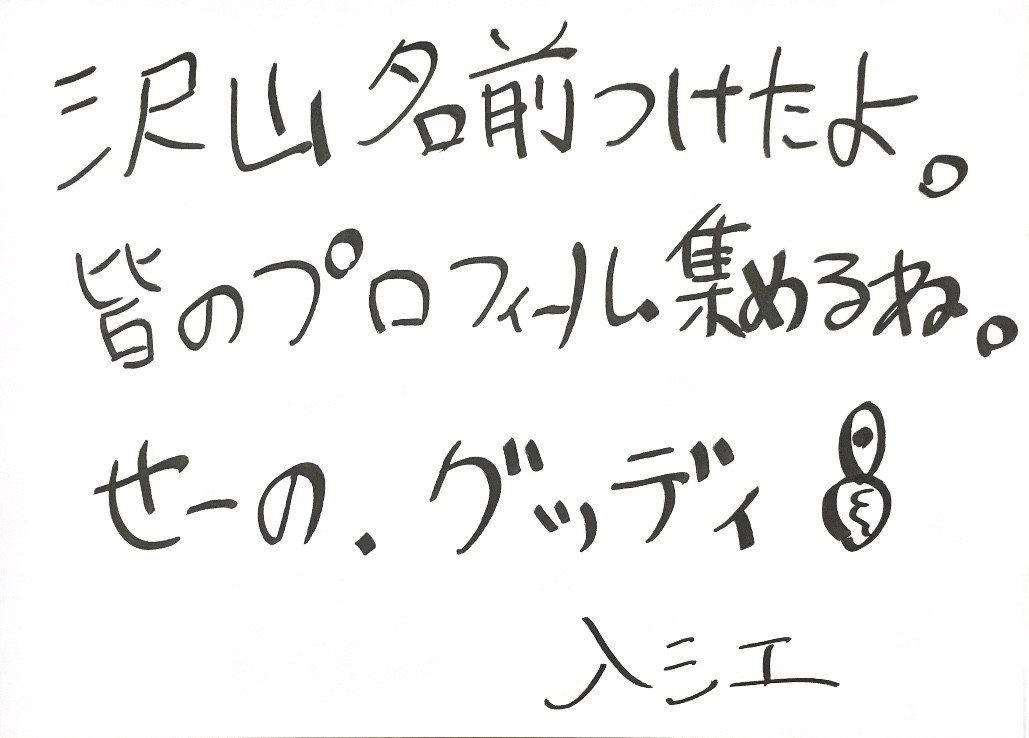 沢山名前つけたよ。
皆のプロフィール、集めるね。
せーの、グッディ
入江